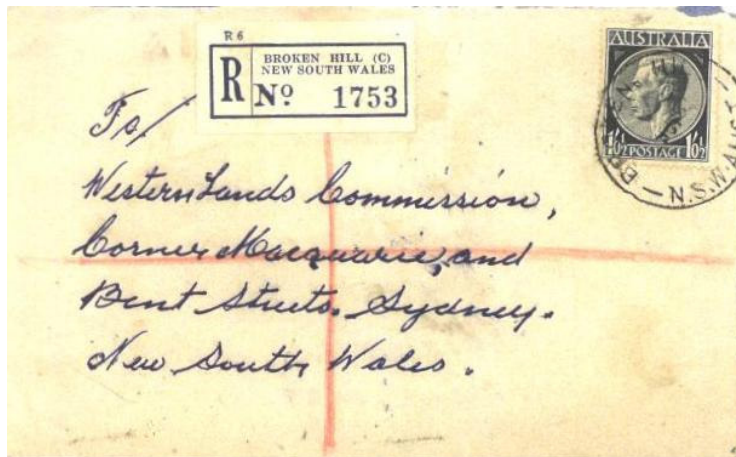 R 6
R
BROKEN HILL (C)
NEW SOUTH WALES
Nº 1753
AUSTRALIA
1'0½ POSTAGE 1'0½
N.S.W.
To/
Western Lands Commission,
Corner Macquarie, and
Bent Streets. Sydney.
New South Wales.